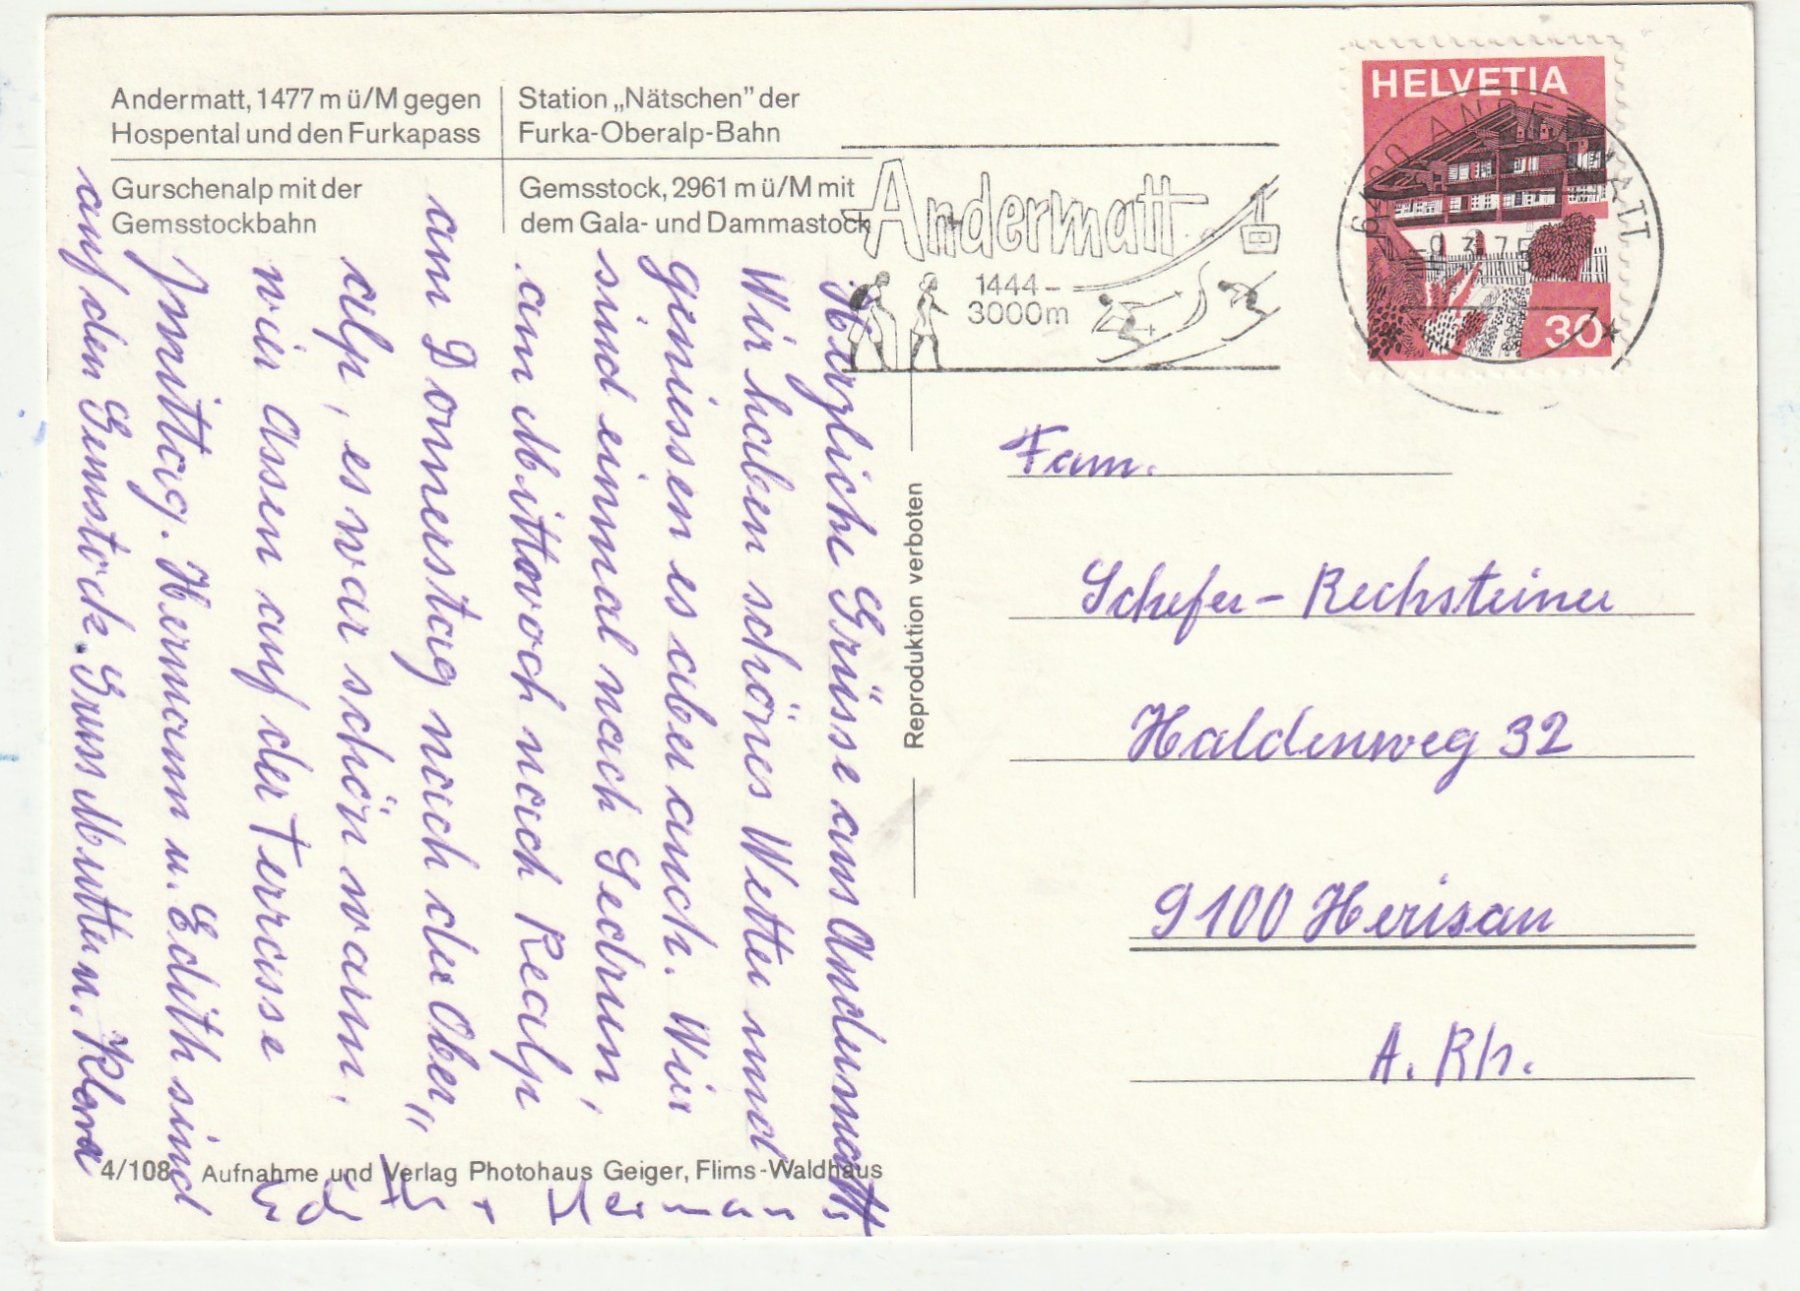 Andermatt, 1477 m ü/M gegen
Hospental und den Furkapass
Station „Nätschen” der
Furka-Oberalp-Bahn
Gurschenalp mit der
Gemsstockbahn
Gemsstock, 2961 m ü/M mit
dem Gala- und Dammastock
Andermatt
1444 –
3000m
HELVETIA
30
6490 ANDERMATT
Herzliche Grüsse aus Andermatt
Wir haben schönes Wetter und
geniessen es aber auch. Wir
sind einmal nach Sedrun,
am Mittwoch nach Realp
am Donnerstag nach der Ober"
alp, es war schön warm.
wir assen auf der Terrasse
Zmittag. Hermann u. Edith sind
auf den Gemstock. Gruss Mutter. Klara
Edith + Hermann
Reproduktion verboten
Fam.
Schefer-Rechsteiner
Haldenweg 32
9100 Herisau
A. Rh.
4/108 Aufnahme und Verlag Photohaus Geiger, Flims-Waldhaus